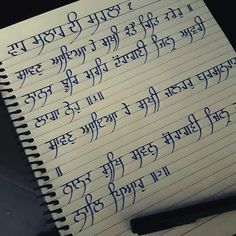 ਵਾਰ ਮਲਾਰ ਕੀ ਮਹਲਾ ੧
ਸਾਵਣੁ ਆਇਆ ਹੇ ਸਖੀ ਕੰਤੈ ਚਿਤਿ ਕਰੇਹੁ ॥
ਨਾਨਕ ਝੂਰਿ ਮਰਹਿ ਦੋਹਾਗਣੀ ਜਿਨ ਅਵਰੀ
ਲਾਗਾ ਨੇਹੁ ॥੧॥
ਸਾਵਣੁ ਆਇਆ ਹੇ ਸਖੀ ਜਲਹਰੁ ਬਰਸਨਹਾਰੁ
॥
ਨਾਨਕ ਸੁਖਿ ਸਵਨੁ ਸੋਹਾਗਣੀ ਜਿਨ
ਨਾਲਿ ਪਿਆਰੁ ॥੨॥